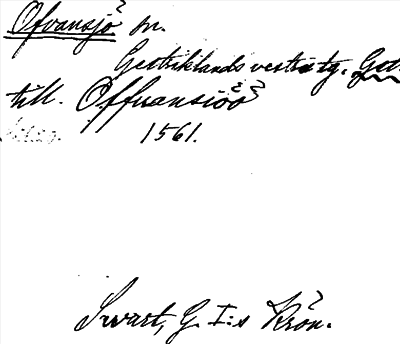 Ofvansjö sn.
Gestriklands vestra tg. Gst.
till. Offuansiöö
1561.
Swart, G. I:s Krön.